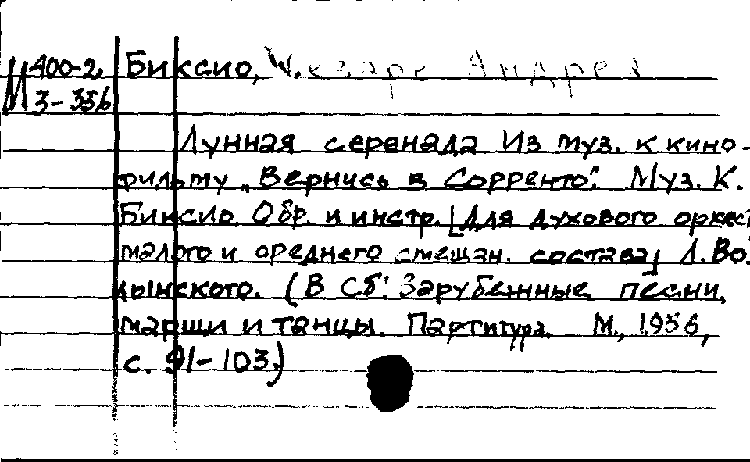 М 400-2 Биксио, Чезаре Андреа
3-356
Лунная серенада Из муз. к кино-
фильму „Вернись в Сорренто". Муз. К.
Биксио. Обр. и инстр. [для духового оркест
малого и среднего смешан. состава] Л. Во
цынского. (В сб: Зарубежные песни,
марши и танцы. Партитура. М., 1956,
с. 91-103)